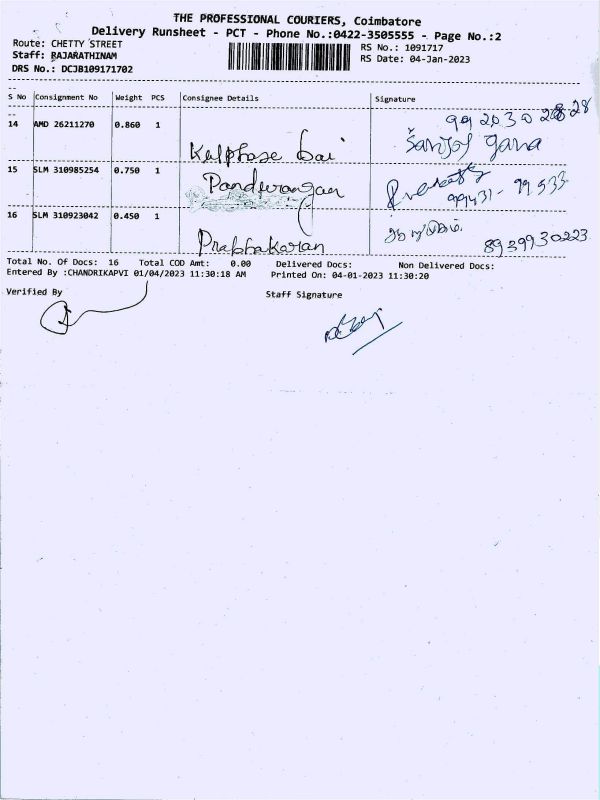 THE PROFESSIONAL COURIERS, Coimbatore
Delivery Runsheet - PCT - Phone No.:0422-3505555 - Page No.:2
Route: CHETTY STREET
RS No.: 1091717
Staff: RAJARATHINAM
RS Date: 04-Jan-2023
DRS No.: DCJB109171702
S No Consignment No Weight PCS Consignee Details Signature
14 AMD 26211270 0.860 1
15 SLM 310985254 0.750 1 Pandurangan 99431-99533
16 SLM 310923042 0.450 1 Prabhakaran 8939930223
Total No. Of Docs: 16 Total COD Amt: 0.00 Delivered Docs: Non Delivered Docs:
Entered By :CHANDRIKAPVI 01/04/2023 11:30:18 AM Printed On: 04-01-2023 11:30:20
Verified By
Staff Signature